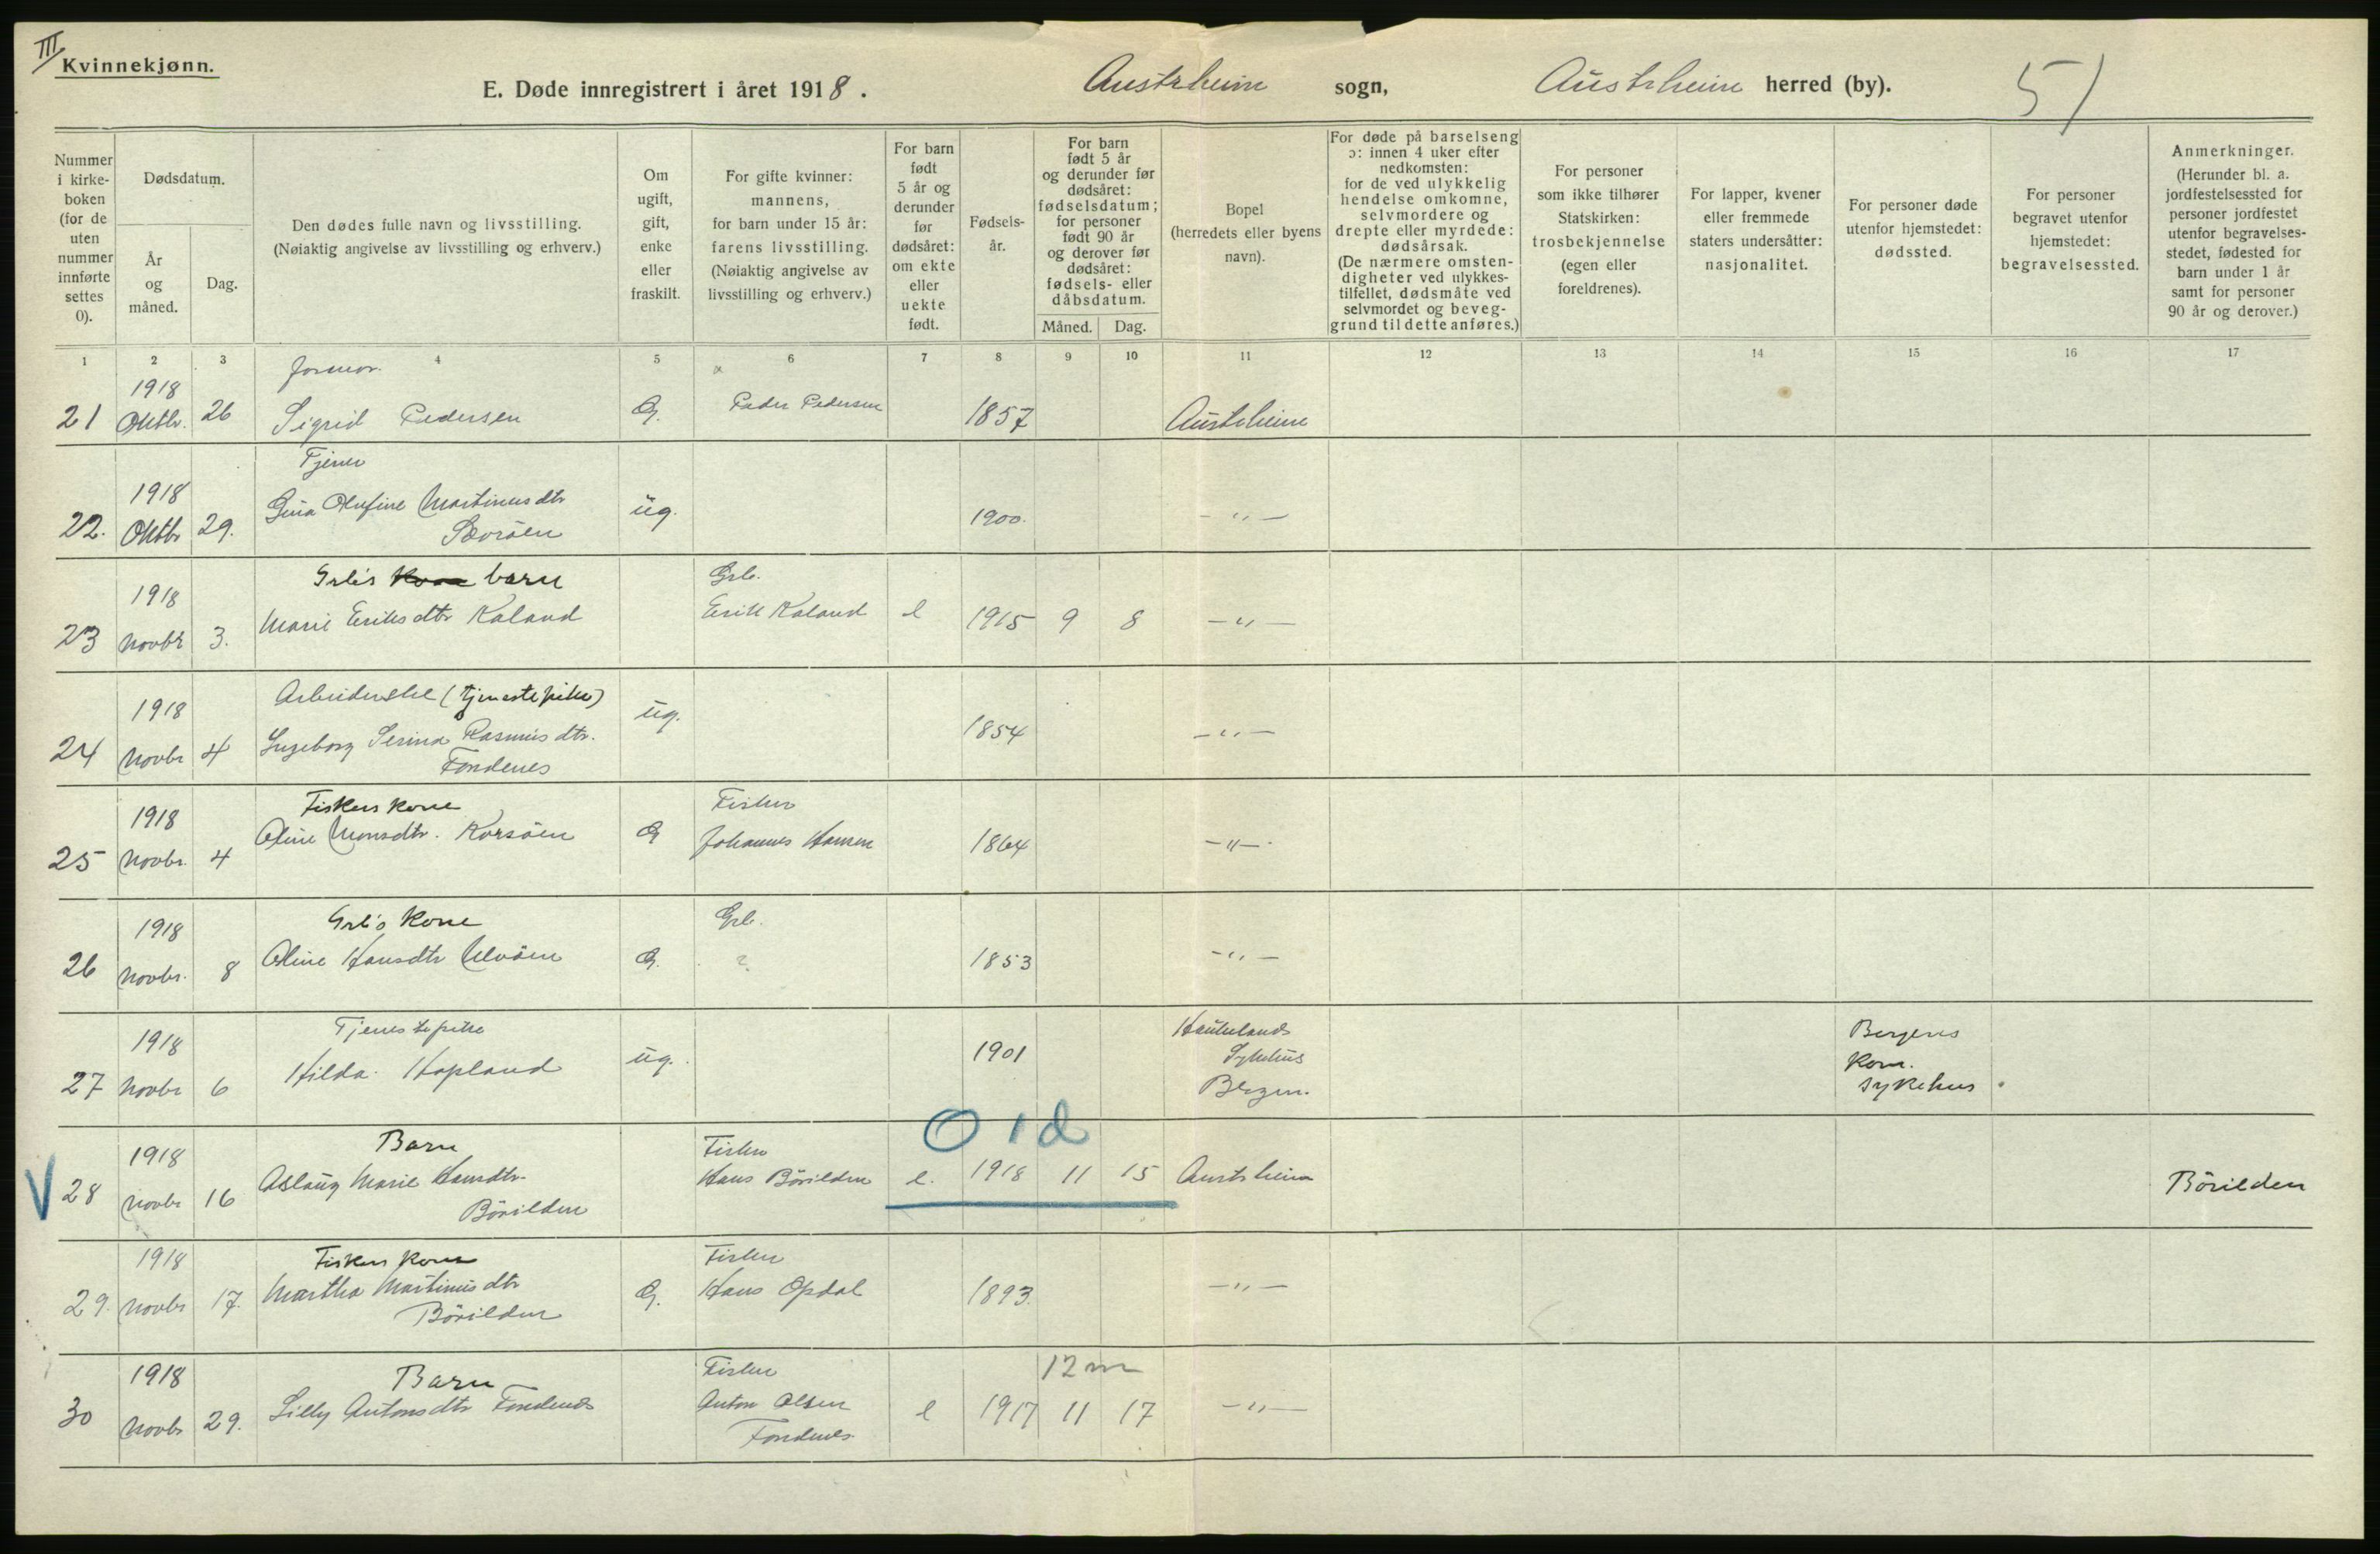 III
Kvinnekjønn.
E. Døde innregistrert i året 1918.
Austrheim sogn,
Austrheim herred (by).
51
Nummer i kirke-boken (for de uten nummer innførte settes 0).
Dødsdatum.
År og måned.
Dag.
Den dødes fulle navn og livsstilling.
(Nøiaktig angivelse av livsstilling og erhverv.)
Om ugift, gift, enke eller fraskilt.
For gifte kvinner: mannens, for barn under 15 år: farens livsstilling. (Nøiaktig angivelse av livsstilling og erhverv.)
For barn født 5 år og derunder før dødsåret: om ekte eller uekte født.
Fødsels-år.
For barn født 5 år og derunder før dødsåret: fødselsdatum; for personer født 90 år og derover før dødsåret: fødsels- eller dåbsdatum.
Måned. Dag.
Bopel (herredets eller byens navn).
For døde på barselseng ɔ: innen 4 uker efter nedkomsten: for de ved ulykkelig hendelse omkomne, selvmordere og drepte eller myrdede: dødsårsak. (De nærmere omsten-digheter ved ulykkes-tilfellet, dødsmåte ved selvmordet og beveg-grund til dette anføres.)
For personer som ikke tilhører Statskirken: trosbekjennelse (egen eller foreldrenes).
For lapper, kvener eller fremmede staters undersåtter: nasjonalitet.
For personer døde utenfor hjemstedet: dødssted.
For personer begravet utenfor hjemstedet: begravelsessted.
Anmerkninger. (Herunder bl. a. jordfestelsessted for personer jordfestet utenfor begravelses-stedet, fødested for barn under 1 år samt for personer 90 år og derover.)
1 2 3 4 5 6 7 8 9 10 11 12 13 14 15 16 17
Jormor.
21 1918 Oktbr. 26 Sigrid Pedersen G. Peder Pedersen 1857 Austrheim
Tjener
22. 1918 Oktbr 29. Gina Olufine Martinusdtr ug. 1900. - " -
Sævröen
Grb's kone barn Grb.
23 1918 Novbr 3. Marie Eriksdtr Kaland Erik Kaland e 1915 9 8 - " -
Arbeiderske (tjenestepike)
24 1918 Novbr 4 Ingeborg Serina Rasmusdtr. ug. 1854 - " -
Fondenes
Fiskers kone Fisker
25 1918 Novbr. 4 Oline Monsdtr. Korsöen G Johannes Hansen 1864 - " -
Grb's kone Grb.
26 1918 Novbr. 8 Oline Hansdtr Ulvöen G. ? 1853 - " -
Tjenestepike
27 1918 Novbr 6 Hilda Hopland ug. 1901 Haukelands Sykehus Bergen. Bergens Kom. sykehus
0 1 d
Barn Fisker
V 28 1918 Novbr 16 Aslaug Marie Hansdtr. Hans Börilden e. 1918 11 15 Austrheim Börilden
Börilden
Fiskers kone Fisker
29. 1918 Novbr 17. Martha Martinusdtr G. Hans Opdal 1893. - " -
Börilden
12 m
Barn Fisker
30 1918 Novbr 29. Lilly Antonsdtr Fondenes Anton Olsen e 1917 11 17 - " -
Fondenes